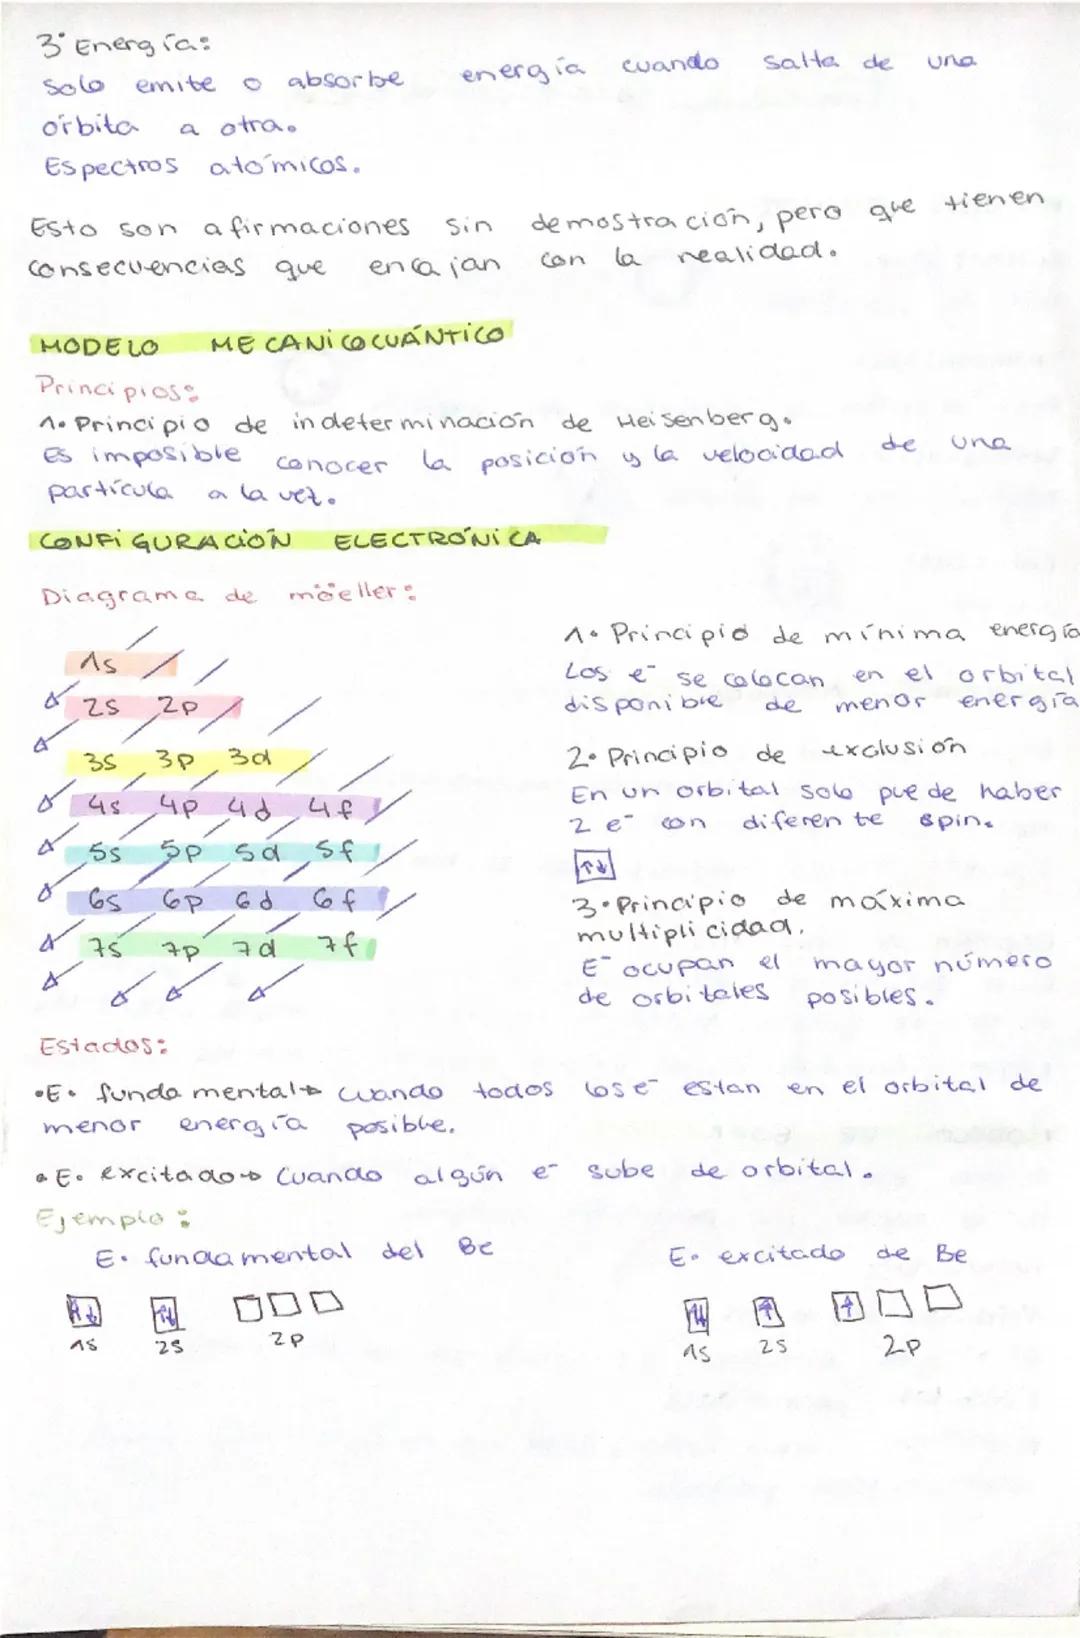 3º Energía:
Solo emite o absorbe energía cuando salta de una
órbita a otra.
Espectros atómicos.
Esto son afirmaciones sin demostración, pero que tienen
consecuencias que encajan con la realidad.
MODELO MECANICOCUÁNTICO
Principios:
1. Principio de indeterminación de Heisenberg.
Es imposible conocer la posición y la velocidad de una
partícula a la vez.
CONFIGURACIÓN ELECTRÓNICA
Diagrama de möeller:
1s
2s 2p
3s 3p 3d
4s 4p 4d 4f
5s 5p 5d 5f
6s 6p 6d 6f
7s 7p 7d 7f
1. Principio de mínima energía
Los e⁻ se colocan en el orbital
disponible de menor energía
2. Principio de exclusión
En un orbital solo puede haber
2 e⁻ con diferente spin.
↑↓
3. Principio de máxima
multiplicidad.
E⁻ ocupan el mayor número
de orbitales posibles.
Estados:
•E. fundamental→ cuando todos los e⁻ estan en el orbital de
menor energía posible.
•E. excitado→ Cuando algún e⁻ sube de orbital.
Ejemplo:
E. fundamental del Be
↑↓ ↑↓
1s 2s 2p
E. excitado de Be
↑↓ ↑ ↑
1s 2s 2p